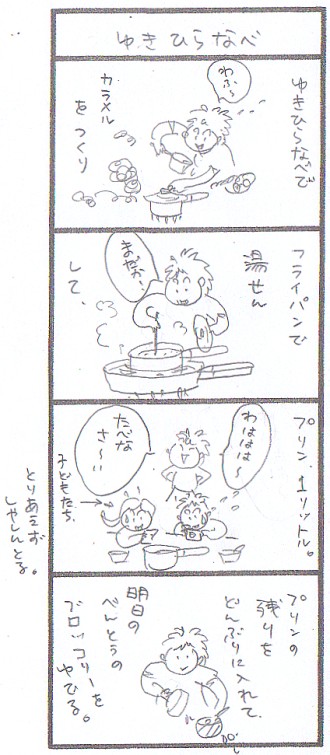 ゆきひらなべ
ゆきひらなべで
わふ〜
カラメル
をつくり
フライパンで
湯せん
して、
まだか、
プリン、1リットル。
わははは〜
たべな
さ〜い
子どもたち、
とりあえず
しゃしんとる。
プリンの
残りを
どんぶりに入れて、
明日の
べんとうの
ブロッコリーを
ゆでる。